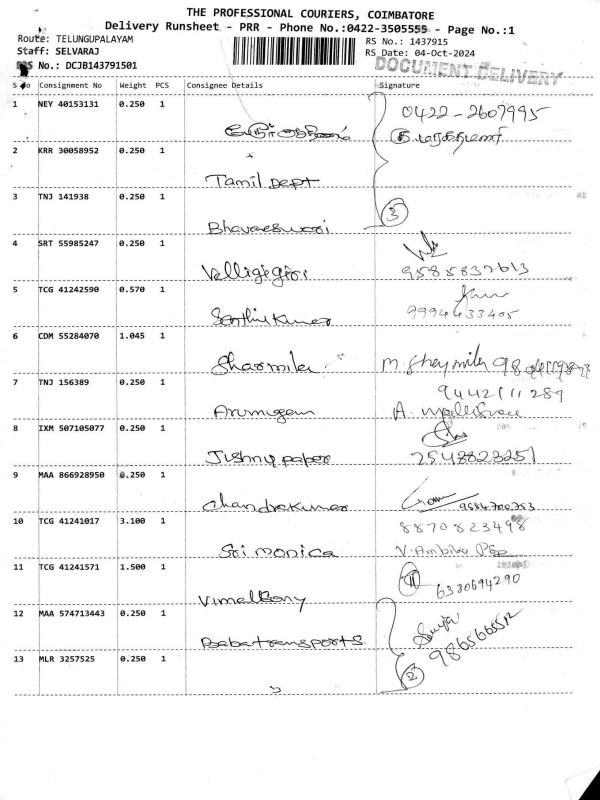 THE PROFESSIONAL COURIERS, COIMBATORE
Delivery Runsheet - PRR - Phone No.:0422-3505555 - Page No.:1
Route: TELUNGUPALAYAM
RS No.: 1437915
Staff: SELVARAJ
RS Date: 04-Oct-2024
DRS No.: DCJB143791501
DOCUMENT DELIVERY
S No Consignment No Weight PCS Consignee Details Signature
1 NEY 40153131 0.250 1 0422-2607995
2 KRR 30058952 0.250 1
Tamil Dept
3 TNJ 141938 0.250 1 3
Bhavaneswari
4 SRT 55985247 0.250 1
Velligigiri 9585837613
5 TCG 41242590 0.570 1
Senthil Kumar 9994433405
6 CDM 55284070 1.045 1
Sharmila
7 TNJ 156389 0.250 1 9442111289
Arumugam A.
8 IXM 507105077 0.250 1
Jishnu paper 2548823251
9 MAA 866928950 0.250 1
Chandrakumar 9584700753
10 TCG 41241017 3.100 1 8870823498
Sri monica V. Ambika
11 TCG 41241571 1.500 1 6380694290
Vimal Rony
12 MAA 574713443 0.250 1 Suja
Baba transports
13 MLR 3257525 0.250 1 2